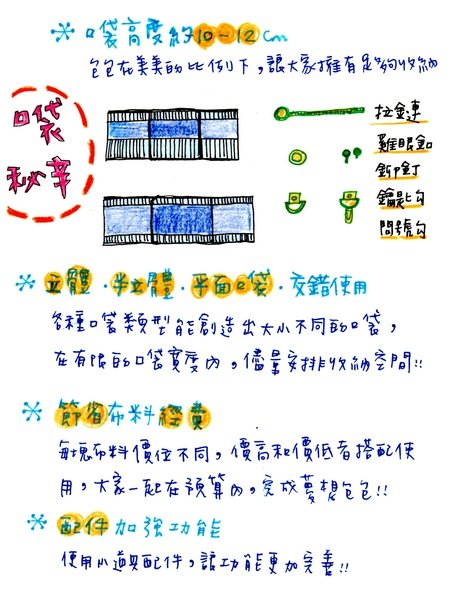 * 口袋高度約10-12cm
包包在美美的比例下，讓大家擁有足夠收納
口袋
秘辛
拉鍊
雞眼釦
鉚釘
鑰匙勾
問號勾
* 立體·半立體·平面口袋·交錯使用
各種口袋類型能創造出大小不同的口袋，
在有限的口袋寬度內，儘量安排收納空間!!
* 節省布料經費
每塊布料價位不同，價高和價低者搭配使
用，大家一起在預算內，完成夢想包包!!
* 配件加強功能
使用小道具配件，讓功能更加完善!!